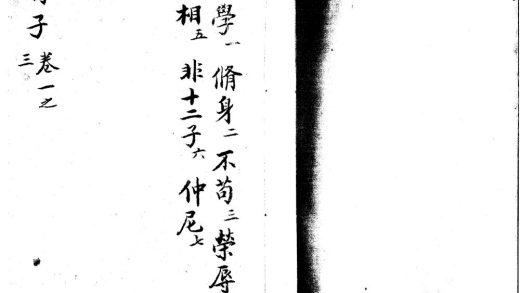 學一 脩身二 不苟三 榮辱
相五 非十二子六 仲尼七
子 卷一之
三